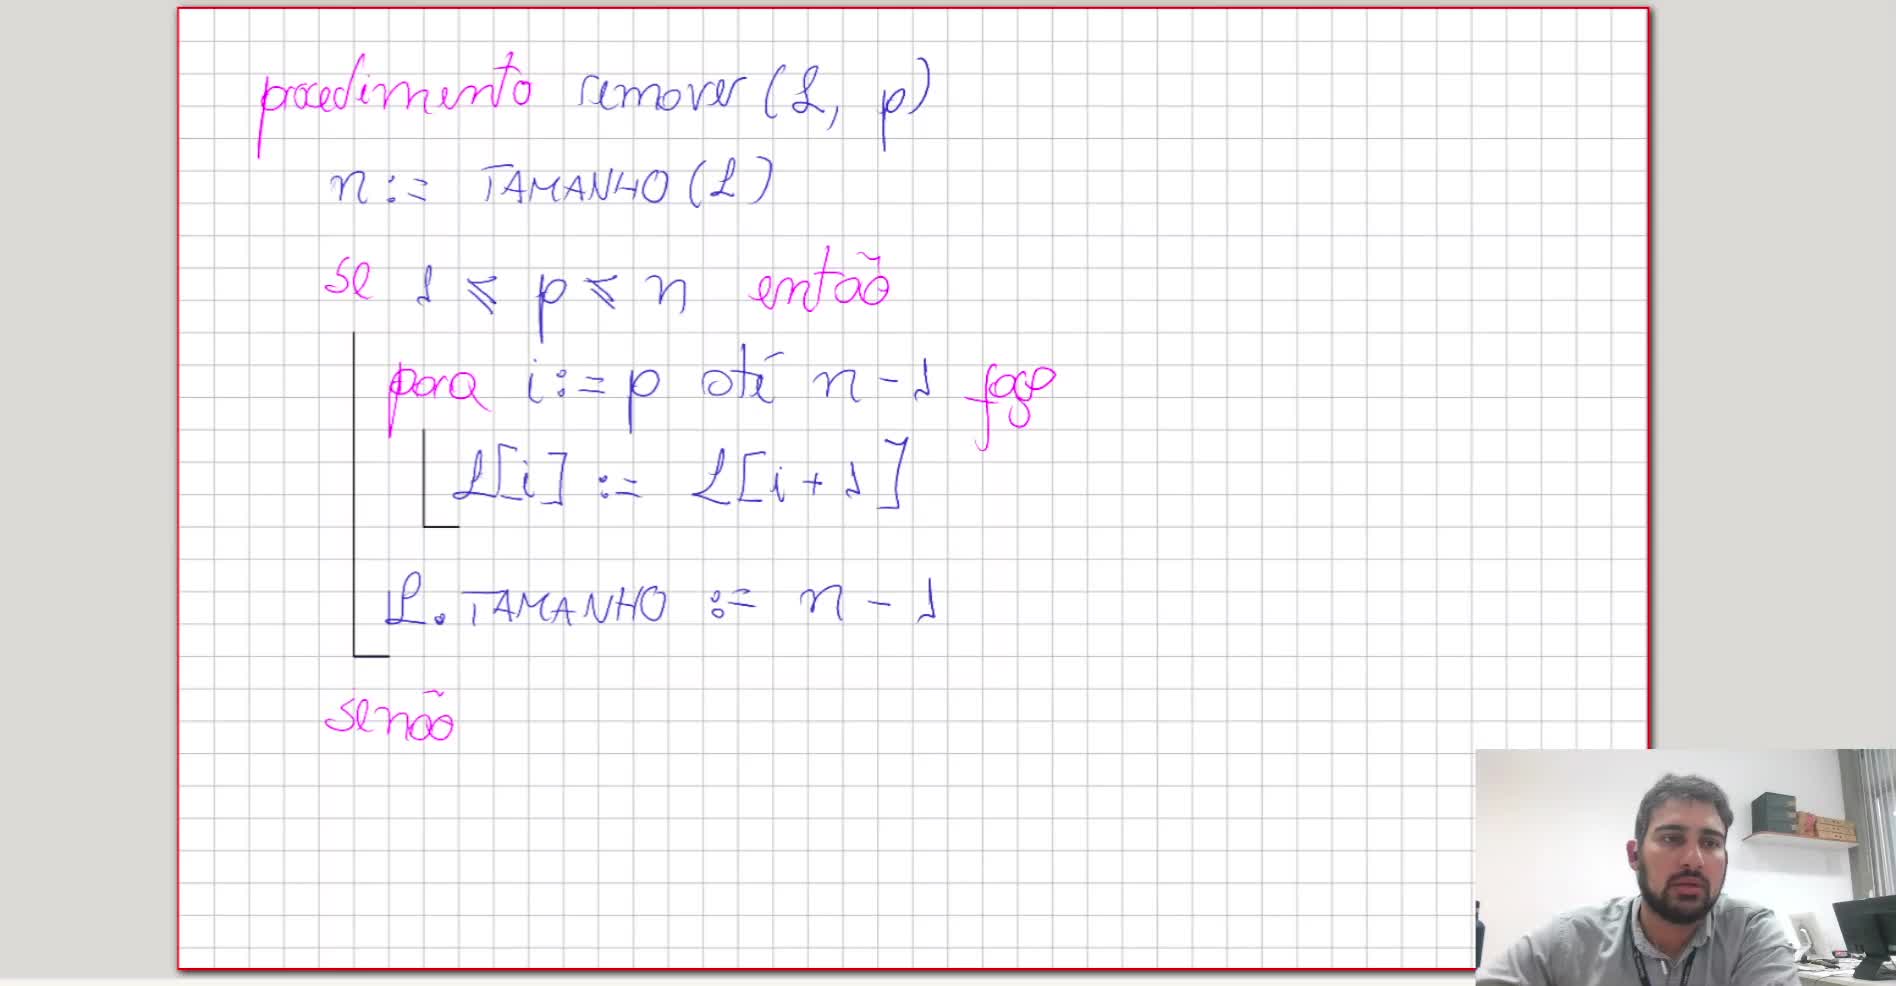 procedimento remover (L, p)
n := TAMANHO (L)
se 1 ⩽ p ⩽ n então
para i := p até n - 1 faça
L[i] := L[i + 1]
L. TAMANHO := n - 1
senão